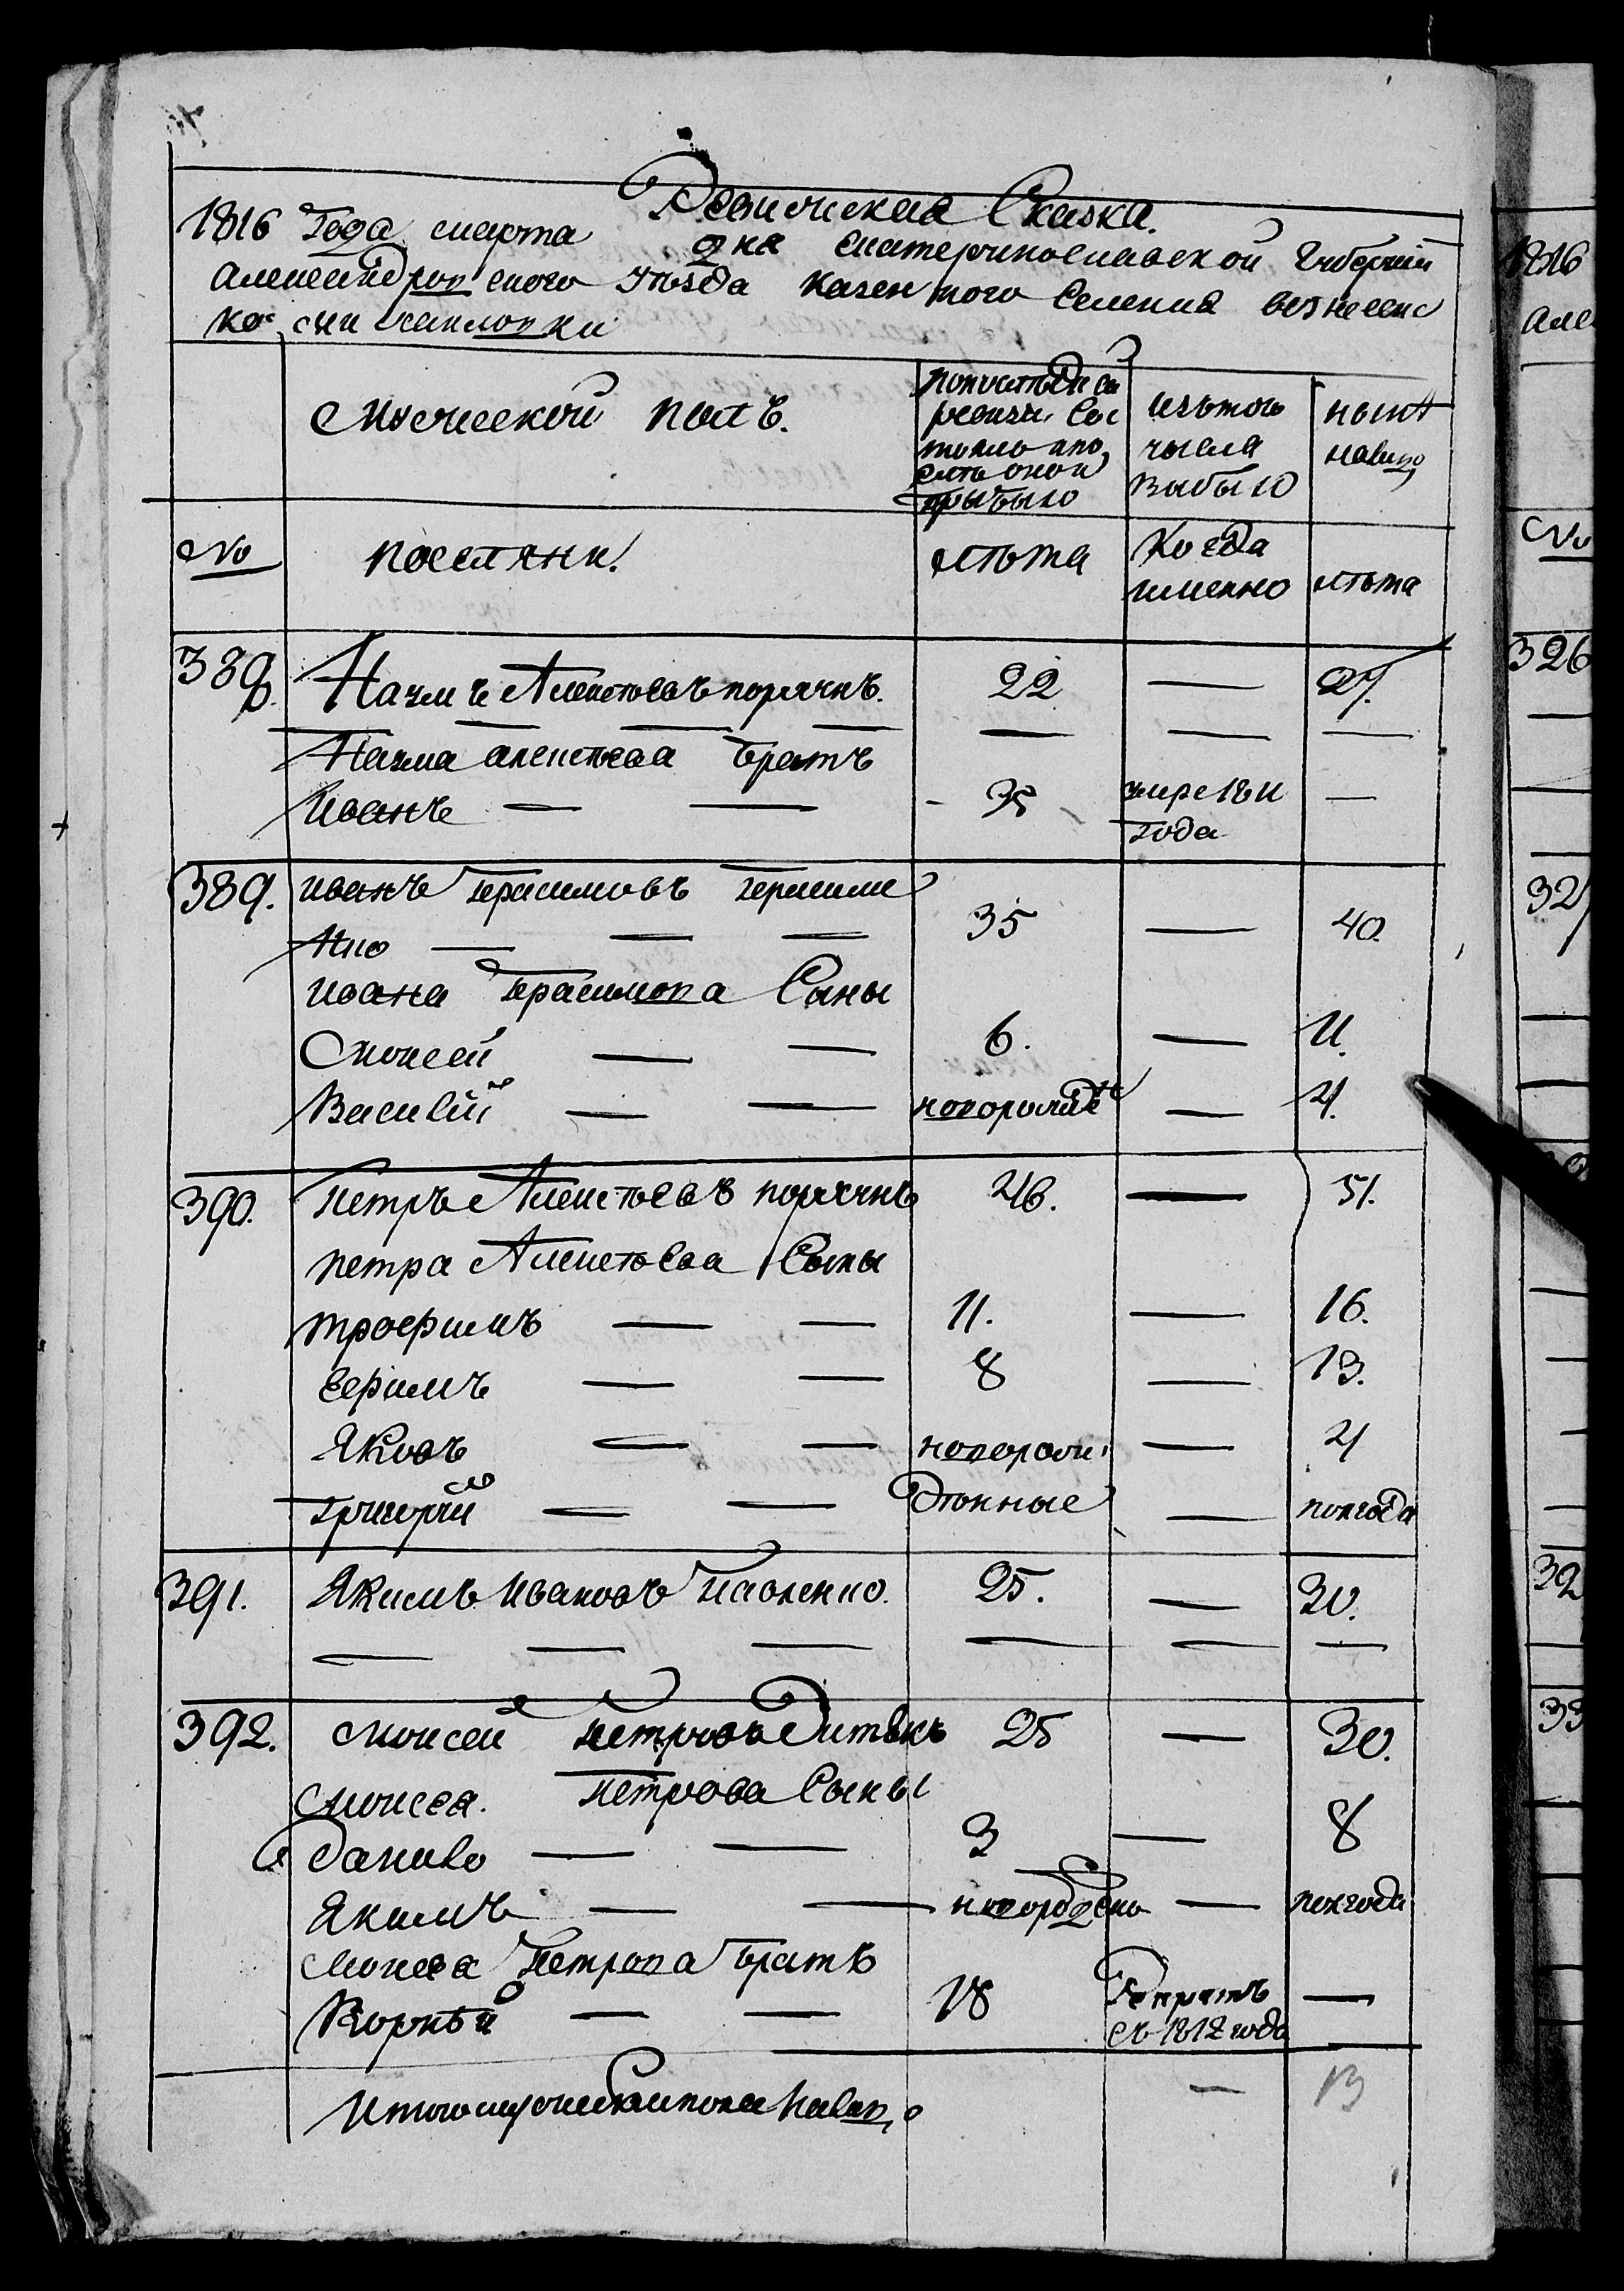 Ревижская Сказка.
1816 Года марта 9 на Екатеринославской Губернии
Александровского уѣзда казенного Селения вознесенс
ко
Мужеской полъ.
попоследней
ревизи сос
тояло ипо
слѣ оной
прибыло
изътого
числа
выбыло
ныне
налицо
№
поселяне
лѣта
Когда
именно
лѣта
388.
Наумъ Алексѣевъ
22
27.
Наума алексѣева братъ
Иванъ
35
умре 1811
года
389.
иванъ Герасимовъ Гераиме
нко
35
40.
ивана Герасимова Сыны
Моисей
6.
11.
Василий
новорожде
4.
390.
петръ Алексѣевъ
46.
51.
петра Алексѣева Сыны
трофимъ
11.
16.
Ефимъ
8
13.
Яковъ
новорож
4
григорий
дѣнные
полгода
391.
Якимъ Ивановъ Павленко.
25.
30.
392.
Моисей петровъ
25
30.
Моисея петрова Сыны
Данило
3
8
Якимъ
новорождено
полгода
Моисея петрова братъ
Корнѣй
18
Рекрутъ
съ 1812 года
Итого мужеска пола налицо
13
1816
але
№
326
327
32
33